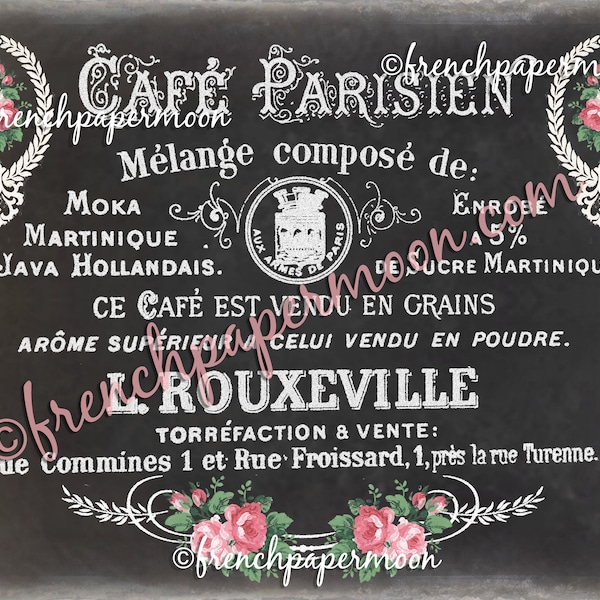 ©frenchpapermoon
CAFÉ PARISIEN
frenchpapermoon
Mélange composé de:
MOKA
MARTINIQUE
JAVA HOLLANDAIS.
AUX ARMES DE PARIS
ENROBÉ
À 5%
DE SUCRE MARTINIQU
CE CAFÉ EST VENDU EN GRAINS
ARÔME SUPÉRIEUR A CELUI VENDU EN POUDRE.
L. ROUXEVILLE
TORRÉFACTION & VENTE:
ue Commines 1 et Rue Froissard, 1, près la rue Turenne.
©frenchpapermoon.com
©frenchpapermoon